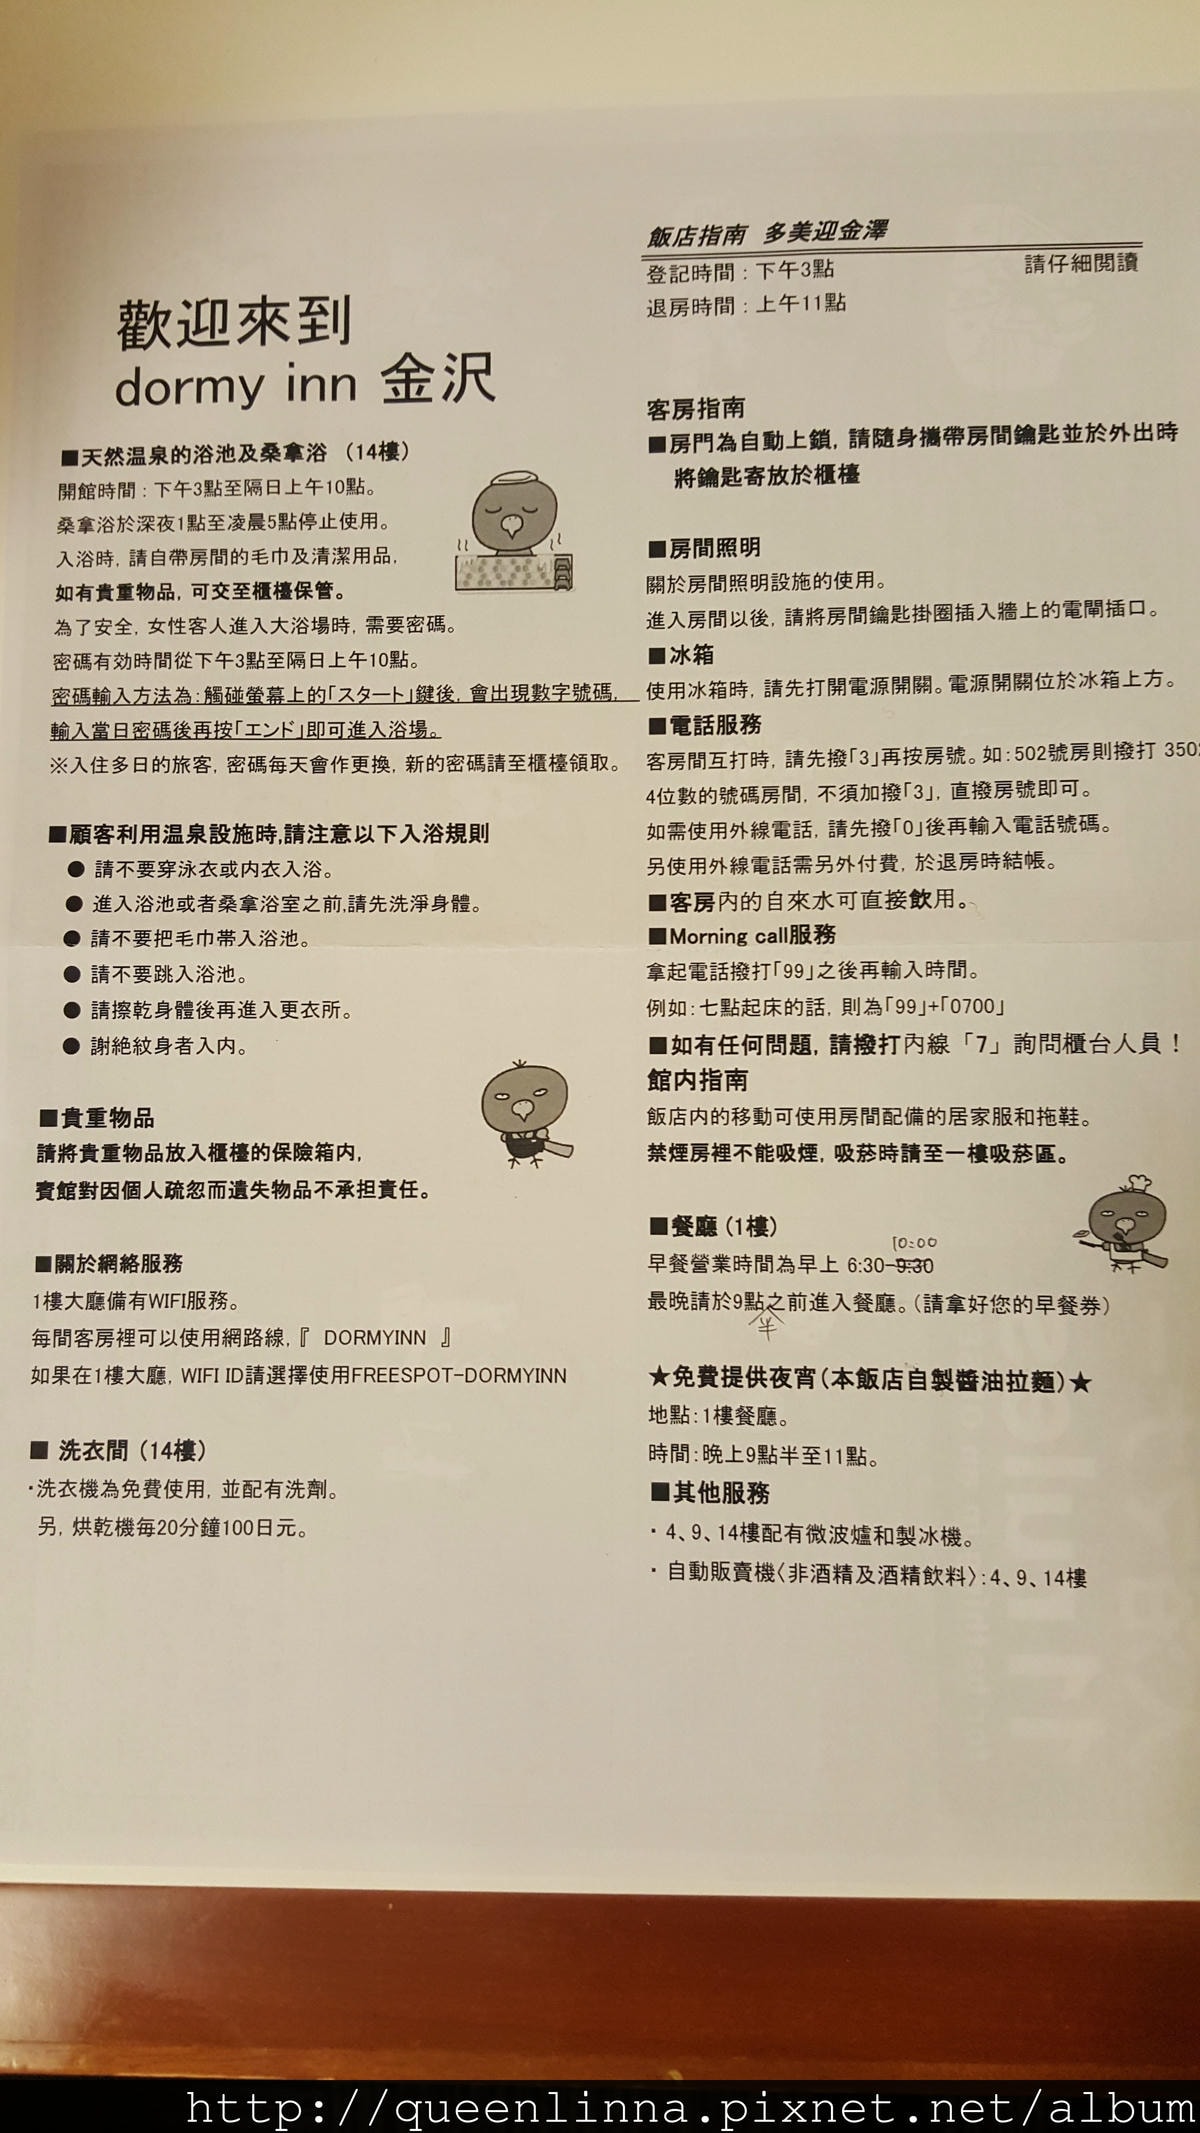 歡迎來到
dormy inn 金沢
■天然温泉的浴池及桑拿浴 （14樓）
開館時間：下午3點至隔日上午10點。
桑拿浴於深夜1點至凌晨5點停止使用。
入浴時，請自帶房間的毛巾及清潔用品，
如有貴重物品，可交至櫃檯保管。
為了安全，女性客人進入大浴場時，需要密碼。
密碼有効時間從下午3點至隔日上午10點。
密碼輸入方法為：觸碰螢幕上的「スタート」鍵後，會出現數字號碼，
輸入當日密碼後再按「エンド」即可進入浴場。
※入住多日的旅客，密碼每天會作更換，新的密碼請至櫃檯領取。
■顧客利用温泉設施時,請注意以下入浴規則
● 請不要穿泳衣或内衣入浴。
● 進入浴池或者桑拿浴室之前,請先洗淨身體。
● 請不要把毛巾帯入浴池。
● 請不要跳入浴池。
● 請擦乾身體後再進入更衣所。
● 謝絶紋身者入内。
■貴重物品
請將貴重物品放入櫃檯的保險箱内，
賓館對因個人疏忽而遺失物品不承担責任。
■關於網絡服務
1樓大廳備有WIFI服務。
每間客房裡可以使用網路線，『 DORMYINN 』
如果在1樓大廳，WIFI ID請選擇使用FREESPOT-DORMYINN
■ 洗衣間（14樓）
・洗衣機為免費使用，並配有洗劑。
另，烘乾機每20分鐘100日元。
飯店指南 多美迎金澤
登記時間：下午3點 請仔細閲讀
退房時間：上午11點
客房指南
■房門為自動上鎖，請隨身攜帶房間鑰匙並於外出時
將鑰匙寄放於櫃檯
■房間照明
關於房間照明設施的使用。
進入房間以後，請將房間鑰匙掛圈插入牆上的電閘插口。
■冰箱
使用冰箱時，請先打開電源開關。電源開關位於冰箱上方。
■電話服務
客房間互打時，請先撥「3」再按房號。如：502號房則撥打 3502
4位數的號碼房間，不須加撥「3」，直撥房號即可。
如需使用外線電話，請先撥「0」後再輸入電話號碼。
另使用外線電話需另外付費，於退房時結帳。
■客房内的自來水可直接飲用。
■Morning call服務
拿起電話撥打「99」之後再輸入時間。
例如：七點起床的話，則為「99」+「0700」
■如有任何問題，請撥打内線「7」詢問櫃台人員！
館内指南
飯店内的移動可使用房間配備的居家服和拖鞋。
禁煙房裡不能吸煙，吸菸時請至一樓吸菸區。
■餐廳（1樓）
10:00
早餐營業時間為早上 6:30-9:30
最晩請於9點之前進入餐廳。（請拿好您的早餐券）
半
★免費提供夜宵（本飯店自製醬油拉麵）★
地點：1樓餐廳。
時間：晩上9點半至11點。
■其他服務
・ 4、9、14樓配有微波爐和製冰機。
・ 自動販賣機〈非酒精及酒精飲料〉：4、9、14樓
http://queenlinna.pixnet.net/album